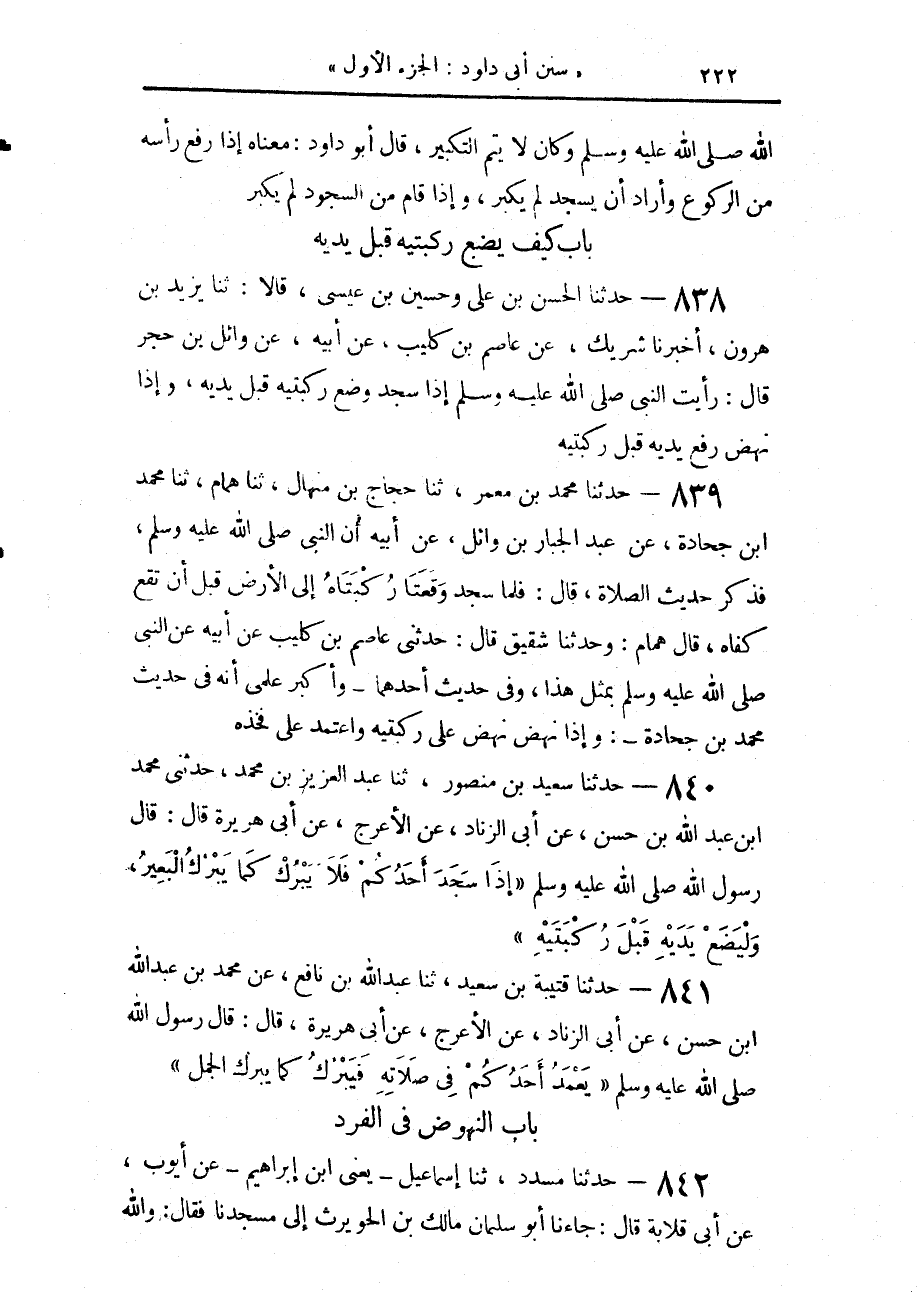 ٢٢٢ « سنن أبى داود : الجزء الأول »
الله صلى الله عليه وسلم وكان لا يتم التكبير ، قال أبو داود : معناه إذا رفع رأسه
من الركوع وأراد أن يسجد لم يكبر ، وإذا قام من السجود لم يكبر
باب كيف يضع ركبتيه قبل يديه
٨٣٨ — حدثنا الحسن بن على وحسين بن عيسى ، قالا : ثنا يزيد بن
هرون ، أخبرنا شريك ، عن عاصم بن كليب ، عن أبيه ، عن وائل بن حجر
قال : رأيت النبى صلى الله عليه وسلم إذا سجد وضع ركبتيه قبل يديه ، وإذا
نهض رفع يديه قبل ركبتيه
٨٣٩ — حدثنا محمد بن معمر ، ثنا حجاج بن منهال ، ثنا همام ، ثنا محمد
ابن جحادة ، عن عبد الجبار بن وائل ، عن أبيه أن النبى صلى الله عليه وسلم ،
فذكر حديث الصلاة ، قال : فلما سجد وَقَعَتَا رُكْبَتَاهُ إلى الأرض قبل أن تقع
كفاه ، قال همام : وحدثنا شقيق قال : حدثنى عاصم بن كليب عن أبيه عن النبى
صلى الله عليه وسلم بمثل هذا ، وفى حديث أحدهما ــ وأكبر علمى أنه فى حديث
محمد بن جحادة ــ : وإذا نهض نهض على ركبتيه واعتمد على فخذه
٨٤٠ — حدثنا سعيد بن منصور ، ثنا عبد العزيز بن محمد ، حدثنى محمد
ابن عبد الله بن حسن ، عن أبى الزناد ، عن الأعرج ، عن أبى هريرة قال : قال
رسول الله صلى الله عليه وسلم « إذَا سَجَدَ أَحَدُكُمْ فَلَا يَبْرُكْ كَمَا يَبْرُكُ الْبَعِيرُ ،
وَلْيَضَعْ يَدَيْهِ قَبْلَ رُكْبَتَيْهِ »
٨٤١ — حدثنا قتيبة بن سعيد ، ثنا عبدالله بن نافع ، عن محمد بن عبدالله
ابن حسن ، عن أبى الزناد ، عن الأعرج ، عن أبى هريرة ، قال : قال رسول الله
صلى الله عليه وسلم « يَعْمَدُ أَحَدُكُمْ فِى صَلَاتِهِ فَيَبْرُكُ كما يبرك الجمل »
باب النهوض فى الفرد
٨٤٢ — حدثنا مسدد ، ثنا إسماعيل ــ يعنى ابن إبراهيم ــ عن أيوب ،
عن أبى قلابة قال : جاءنا أبو سليمان مالك بن الحويرث إلى مسجدنا فقال : والله